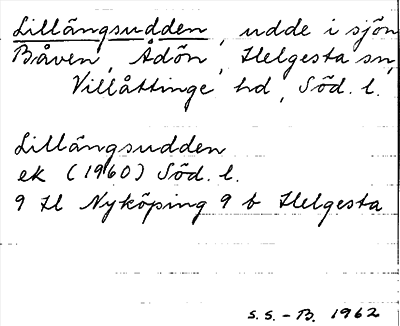 Lillängsudden, udde i sjön
Båven, Ådön, Helgesta sn,
Villåttinge hd, Söd. l.
Lillängsudden
ek (1960) Söd. l.
9 H Nyköping 9 b Helgesta
S.S.-B. 1962